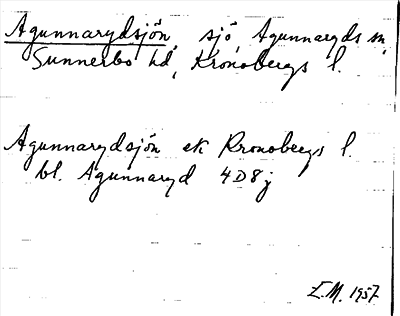 Agunnarydsjön, sjö, Agunnaryds sn,
Sunnerbo hd, Kronobergs l.
Agunnarydsjön ek Kronobergs l.
bl. Agunnaryd 4D8j
E.M. 1957